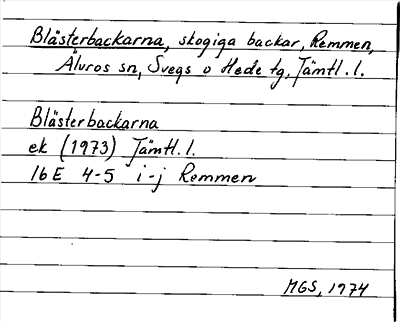 Blästerbackarna, skogiga backar, Remmen,
Älvros sn, Svegs o Hede tg, Jämtl. l.
Blästerbackarna
ek (1973) Jämtl. l.
16E 4-5 i-j Remmen
MGS, 1974